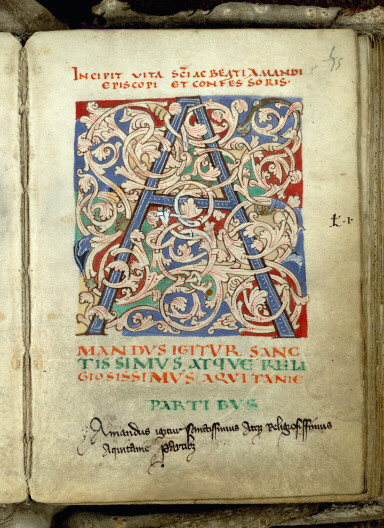 INCIPIT VITA SCI AC BEATI AMANDI
EPISCOPI ET CONFESSORIS·
A
MANDVS IGITVR SANC
TISSIMVS ATQVE RELI
GIOSISSIMVS AQVITANIE
PARTIBVS
Amandus igitur sanctissimus Atq3 Religiosissimus
Aquitanie